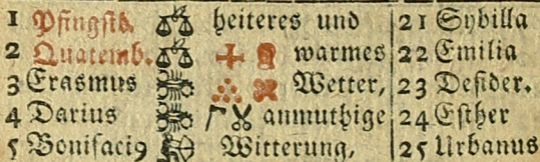 1 Pfingstd. heiteres und 21 Sybilla
2 Quatemb. warmes 22 Emilia
3 Erasmus Wetter, 23 Desider.
4 Darius anmuthige 24 Esther
5 Bonifaci9 Witterung, 25 Urbanus